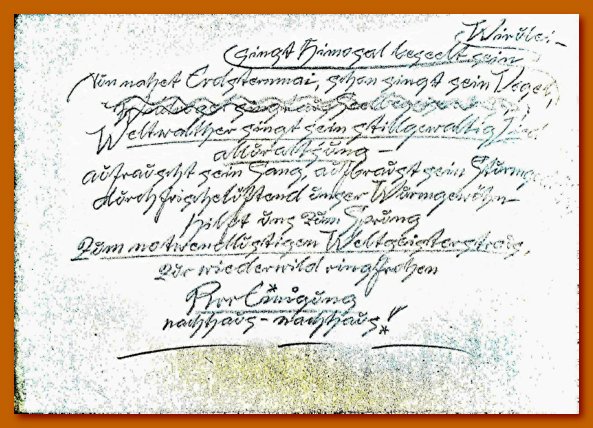 Wirülei–
singt Himosal beseelt sein
Nun nahet Erdsternmai, schon singt sein Vogel,
Weltwalther singt sein stillgewaltig Lied
allüraltjung –
aufrauscht sein Sang, aufbraust sein Sturmge
durchfrischelüftend unser Wurmgewöhn
hilft uns zum Sprung
zum notwendlüstigen Weltgeisterstreig,
zur wiederwild ringfrohen
Rrr Einigung
nachhaus – nachhaus!